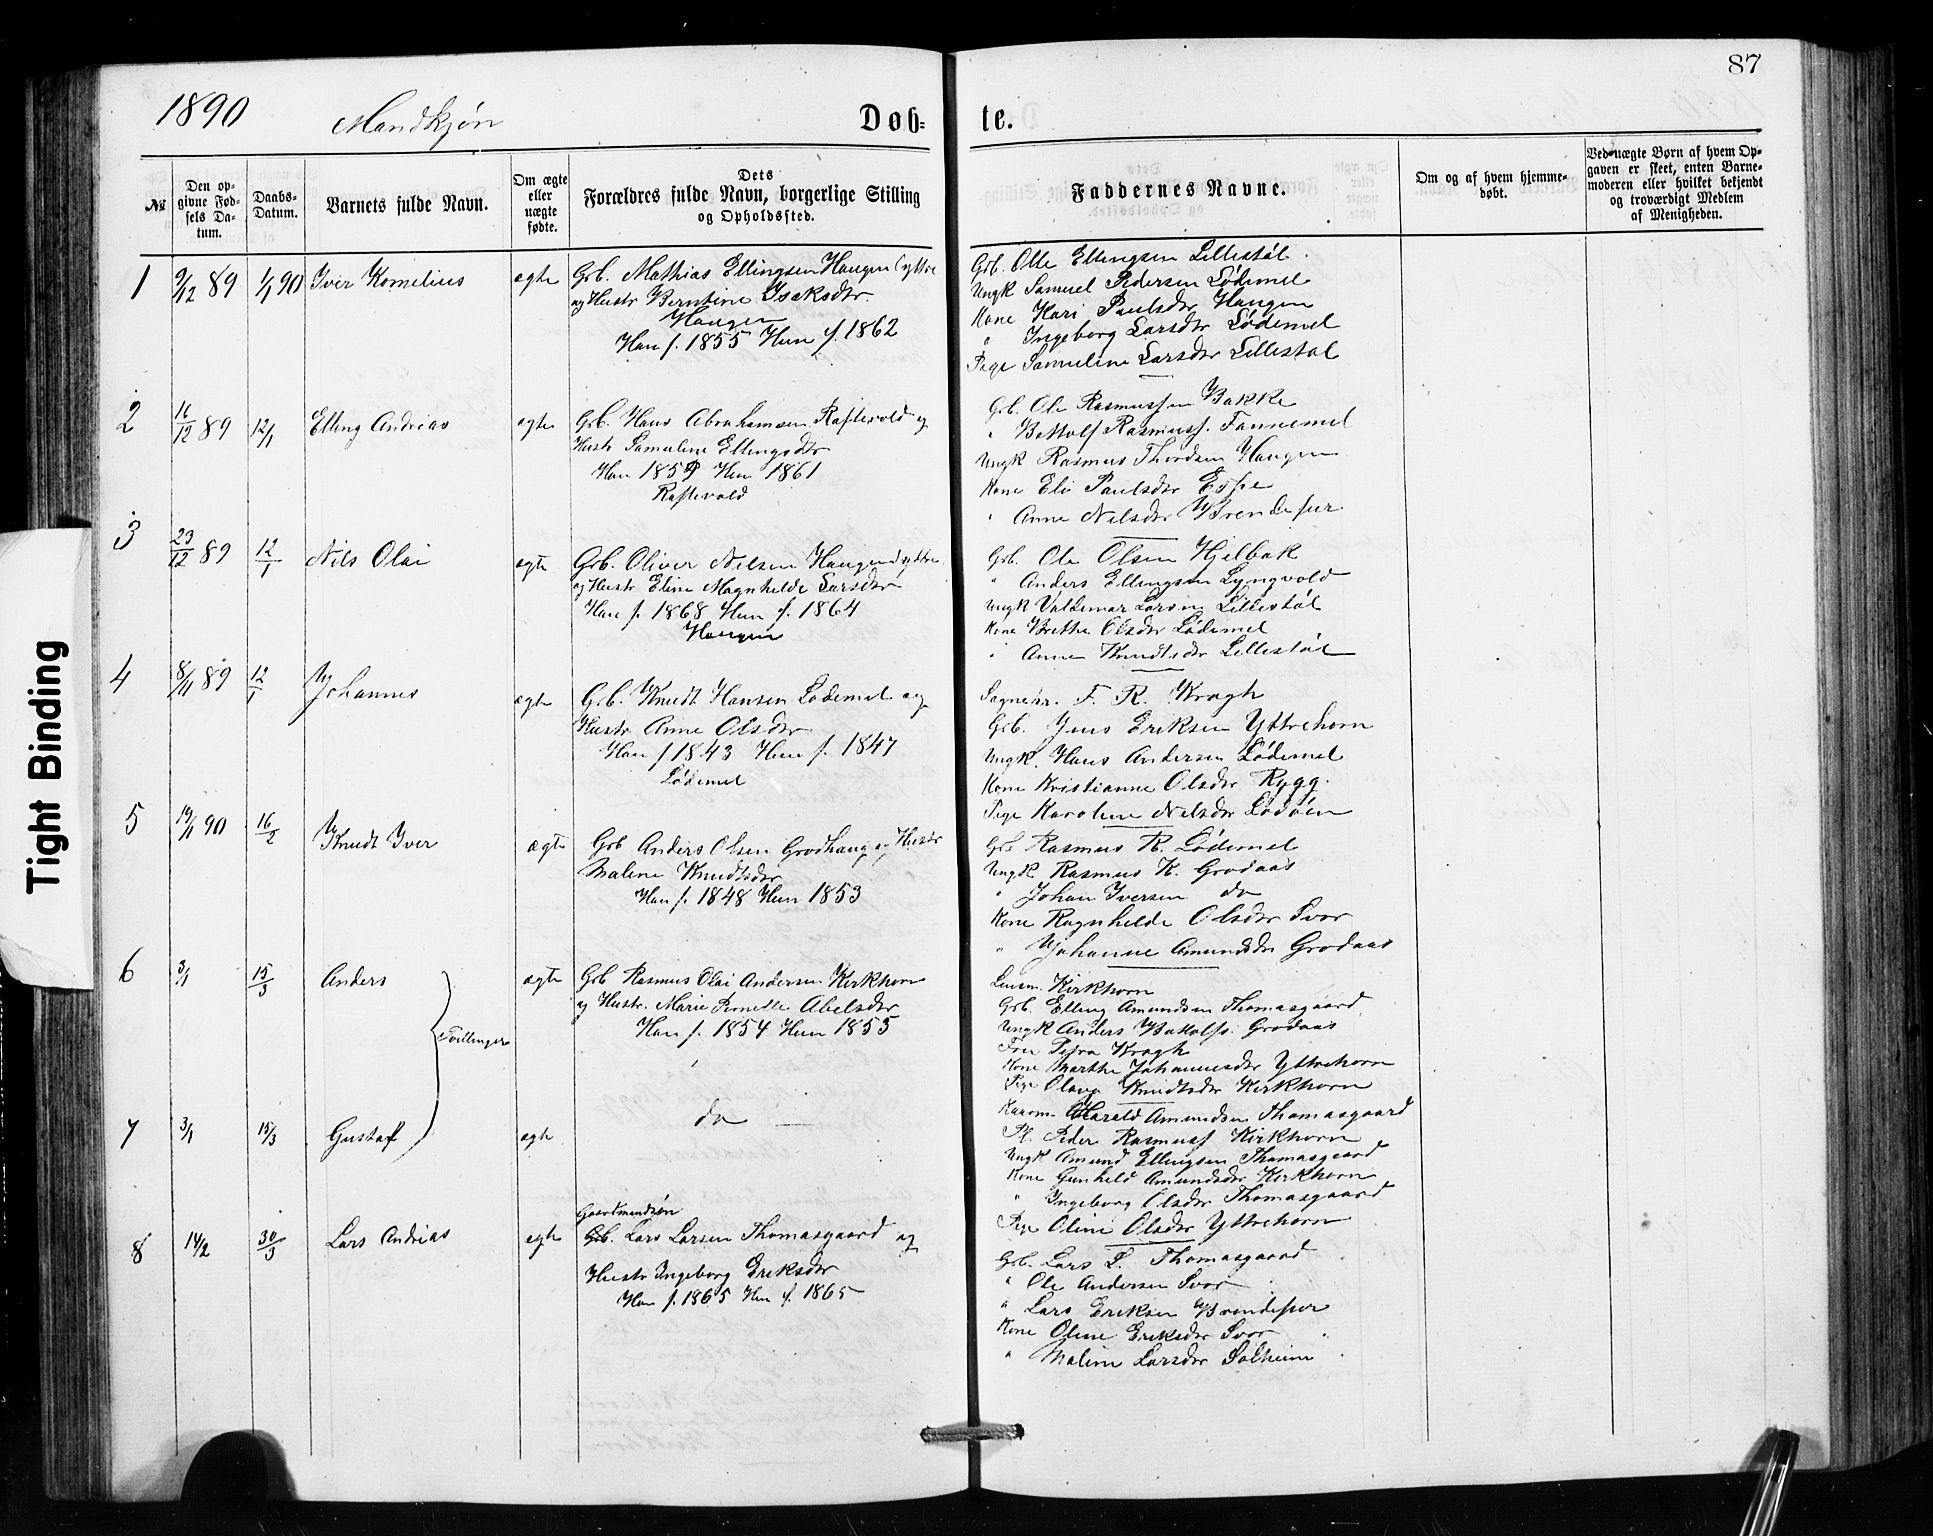 87
1890 Mandkjøn Døb= te.
№
Den op-
givne Fød-
sels Da-
tum.
Daabs-
Datum.
Barnets fulde Navn.
Om ægte
eller
uægte
fødte.
Dets
Forældres fulde Navn, borgerlige Stilling
og Opholdssted.
Faddernes Navne.
Om og af hvem hjemme-
døbt.
Ved uægte Børn af hvem Op-
gaven er skeet, enten Barne-
moderen eller hvilket bekjendt
og troværdigt Medlem
af Menigheden.
1 9/12 89 1/1 90 Iver Kornelius ægte
Grb. Mathias Ellingsen Haugen (yttre
og Hustr Berntine Isaksdtr.
Haugen
Han f. 1855 Hun f. 1862
Grb. Ole Ellingsen Lillestøl.
Ungk Samuel Pedersen Lødemel
Kone Kari Paulsdtr Haugen
" Ingeborg Larsdtr Lødemel
Pige Samuline Larsdtr Lillestøl
2 16/12 89 12/1 Elling Andreas ægte
Grb. Hans Abrahamsen Raftevold og
Hustr Samuline Ellingsdtr
Han 1859 Hun 1861
Raftevold
Grb. Ole Rasmussen Bakke
" Bottolf Rasmuss. Fannemel
Ungk Rasmus Thordsen Haugen
Kone Eli Paulsdtr Espe
" Anne Nilsdtr Brendefur
3 23/12 89 12/1 Nils Olai ægte
Grb. Oliver Nilsen Haugen (yttre
og Hustr Eline Magnhilde Larsdtr
Han f. 1868 Hun f. 1864
Haugen
Grb. Ole Olsen Hjelbak
" Anders Ellingsen Lyngvold
Ungk Valdemar Larsen Lillestøl
Kone Brithe Olsdtr Lødemel
" Anne Knudtsdtr Lillestøl
4 8/11 89 12/1 Johannes ægte
Grb. Knudt Hansen Lødemel og
Hustr Anne Olsdtr
Han f 1843 Hun f. 1847
Lødemel
Sognepr. F. R. Kragh
Grb. Jens Eriksen Yttrehorn
Ungk. Hans Andersen Lødemel
Kone Kristianne Olsdtr Rygg.
Pige Karoline Nilsdtr Lødøen
5 19/1 90 16/2 Knudt Iver ægte
Grb Anders Olsen Grodhaug og Hustr
Maline Knudtsdtr
Han f. 1848 Hun 1853
Grb Rasmus R. Lødemel
Ungk Rasmus K. Grodaas
" Johan Iversen do
Kone Ragnhilde Olsdtr Svor
" Johanne Amundsdtr Grodaas
6 3/1 15/3 Anders ægte
Tvillinger
Grb Rasmus Olai Andersen Kirkhorn
og Hustr. Marie Pernelle Abelsdtr
Han f. 1854 Hun 1855
Lensm. Kirkhorn
Grb. Elling Amundsen Thomasgaard
Ungk Anders Bottolfs. Grodaas
Fru Petra Kragh
Kone Marthe Johannesdtr Yttrehorn
Pige Olaug Knudtsdtr Kirkhorn
7 3/1 15/3 Gustaf ægte
do
Harald Amundsen Thomasgaard
Peder Rasmuss Kirkhorn
Ungk Amund Ellingsen Thomasgaard
Kone Gunhild Amundsdtr Kirkhorn
" Ingeborg Olsdtr Thomasgaard
Pige Oline Olsdtr Yttrehorn
8 14/2 30/3 Lars Andreas ægte
Gaardmandsøn
Grb. Lars Larsen Thomasgaard og
Hustr Ingeborg Eriksdtr
Han f. 1865 Hun f. 1865
Grb. Lars L. Thomasgaard
" Ole Andersen Svor
" Lars Eriksen Brendefur
Kone Oline Eriksdtr Svor
" Maline Larsdtr Solheim
Tight Binding